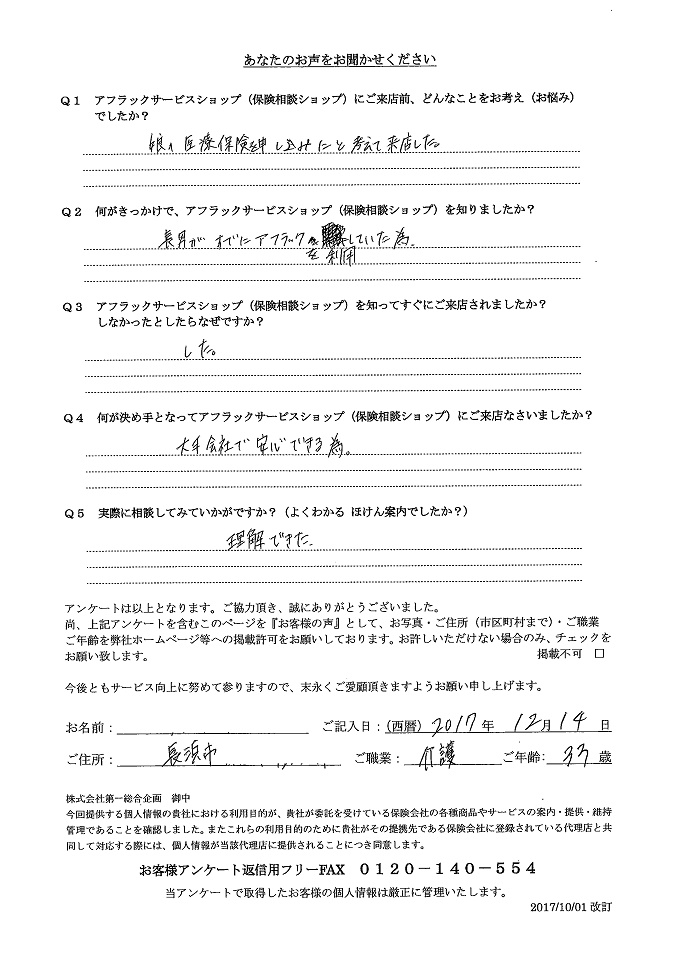 あなたのお声をお聞かせください
Q1 アフラックサービスショップ（保険相談ショップ）にご来店前、どんなことをお考え（お悩み）
でしたか？
娘の医療保険を申し込みたいと考えて来店した。
Q2 何がきっかけで、アフラックサービスショップ（保険相談ショップ）を知りましたか？
長男がすでにアフラックしていた為。
を利用
Q3 アフラックサービスショップ（保険相談ショップ）を知ってすぐにご来店されましたか？
しなかったとしたらなぜですか？
した。
Q4 何が決め手となってアフラックサービスショップ（保険相談ショップ）にご来店なさいましたか？
大手会社で安心できる為。
Q5 実際に相談してみていかがですか？（よくわかる ほけん案内でしたか？）
理解できた。
アンケートは以上となります。ご協力頂き、誠にありがとうございました。
尚、上記アンケートを含むこのページを『お客様の声』として、お写真・ご住所（市区町村まで）・ご職業
ご年齢を弊社ホームページ等への掲載許可をお願いしております。お許しいただけない場合のみ、チェックを
お願い致します。 掲載不可 □
今後ともサービス向上に努めて参りますので、末永くご愛顧頂きますようお願い申し上げます。
お名前： ご記入日：（西暦）2017年 12月14日
ご住所： 長浜市 ご職業： 介護 ご年齢： 33歳
株式会社第一総合企画 御中
今回提供する個人情報の貴社における利用目的が、貴社が委託を受けている保険会社の各種商品やサービスの案内・提供・維持
管理であることを確認しました。またこれらの利用目的のために貴社がその提携先である保険会社に登録されている代理店と共
同して対応する際には、個人情報が当該代理店に提供されることにつき同意します。
お客様アンケート返信用フリーFAX 0120－140－554
当アンケートで取得したお客様の個人情報は厳正に管理いたします。
2017/10/01 改訂